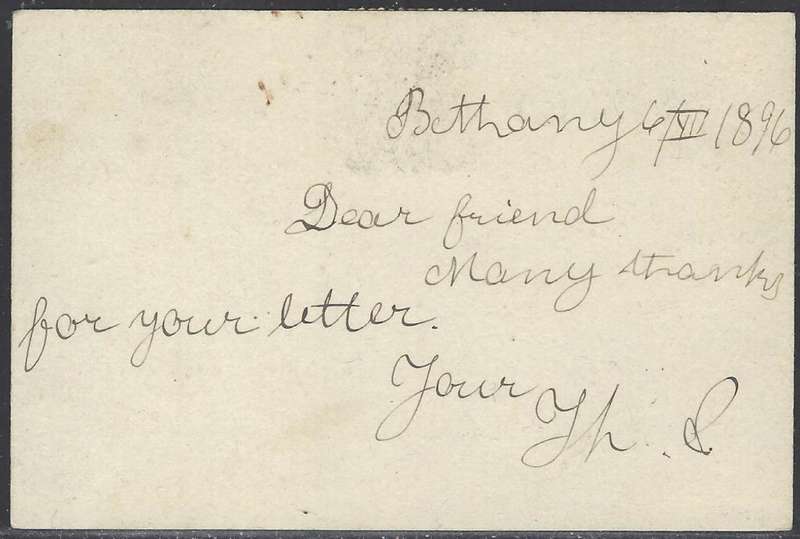 Bethany 6/VII 1896
Dear friend
Many thanks
for your letter.
Your
Th. S.